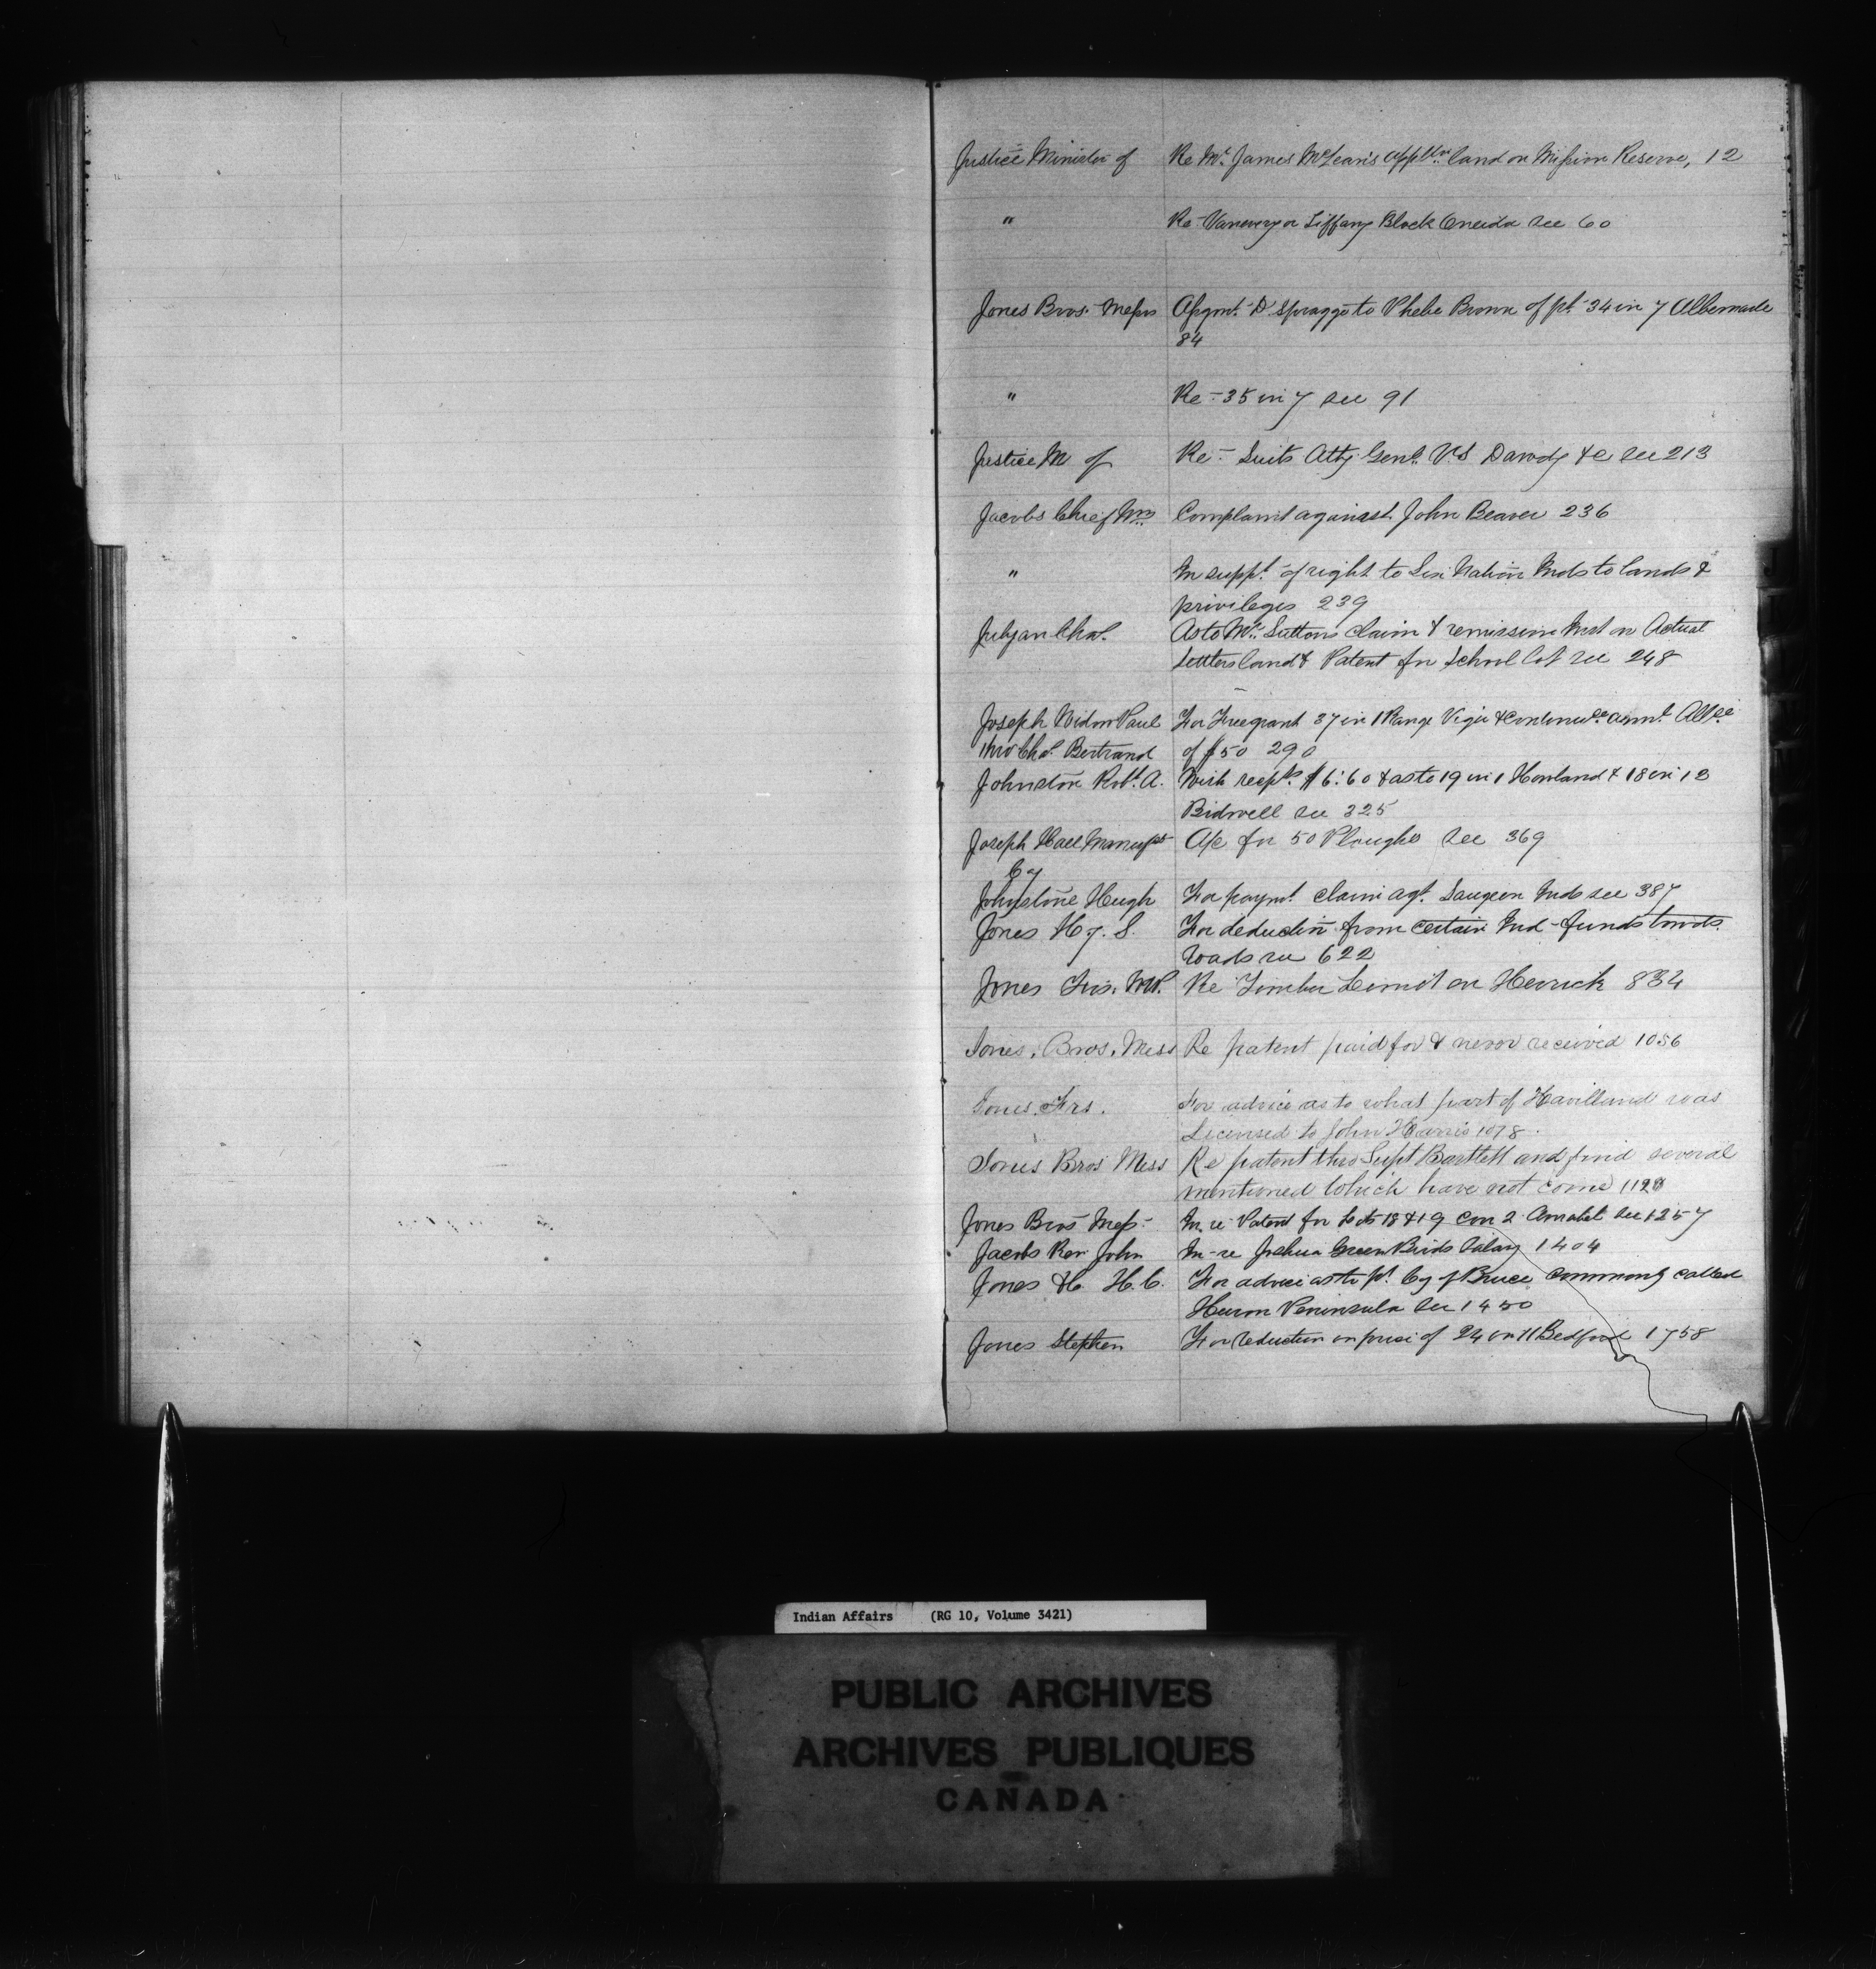 Justice Minister of Re Mr. James McLean's applctn land on Mission Reserve, 12
" Re Vanevery or Tiffany Block Oneida see 60
Jones Bros. Messrs Assgmt. D Spragge to Phebe Brown of pt 34 in 7 Albemarle
84
" Re - 35 in 7 see 91
Justice M of Re - Suits Atty Genl. V.S Darody &c see 213
Jacobs Chief Wm Complaint against John Beaver 236
" In suppt. of right to Six Nation Inds to lands &
privileges 239
Julyan Chas. As to Mr. Suttons claim & remission Inst on Actual
Settlers land & Patent for School lot see 248
Joseph Widow Paul For Free grant 37 in 1 Range Viger & continuce annl. Allce
thro Chas. Bertrand of $50 290
Johnston Robt. A. With recpts. $6.60 & as to 19 in 1 Howland & 18 in 13
Bidwell see 325
Joseph Hall Manufg A/c for 50 Ploughs see 369
Cy
Johnstone Hugh For paymt. claim agt. Saugeen Inds see 387
Jones Hy. S. For deduction from certain Ind - funds towds.
roads see 622
Jones Frs. MP. Re Timber Limit on Herrick 834
Jones, Bros, Mess Re patent paid for & never received 1056
Jones, Frs. For advice as to what part of Havilland was
Licensed to John Harris 1078.
Jones Bros Mess Re patent thro Supt Bartlett and find several
mentioned which have not come 1128
Jones Bros Mess - In re Patent for Lots 18 & 19 Con 2 Amabel see 1257
Jacobs Rev John In - re Joshua Green Birds Salary 1404
Jones H. H.C. For advice as to pt. Cy of Bruce commonly called
Huron Peninsula see 1450
Jones Stephen For reduction on price of 24 on 11 Bedford 1758
Indian Affairs (RG 10, Volume 3421)
PUBLIC ARCHIVES
ARCHIVES PUBLIQUES
CANADA